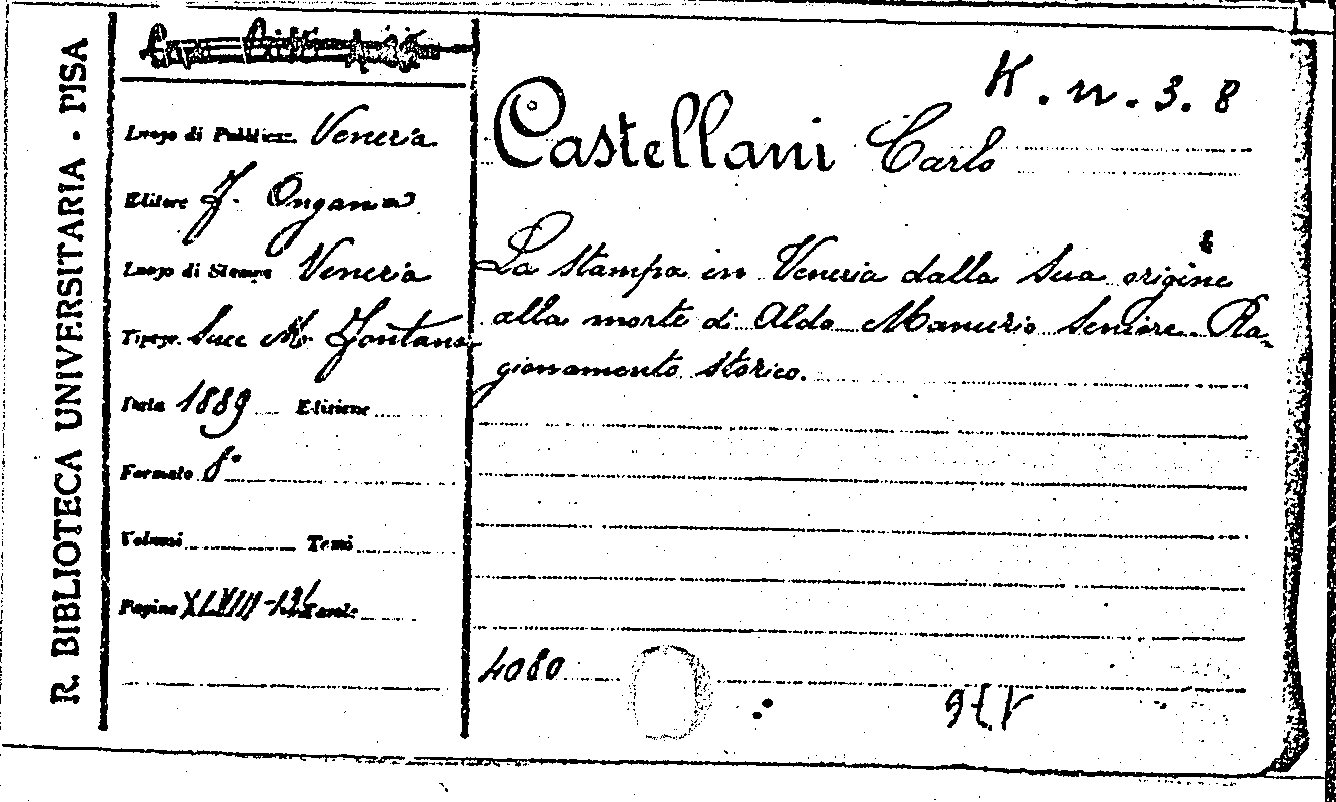 R. BIBLIOTECA UNIVERSITARIA - PISA
K. n. 3. 8
Luogo di Pubblicaz. Venezia
Editore F. Ongania
Luogo di Stampa Venezia
Tipogr. Succ M. Fontana
Data 1889 Edizione
Formato 8°
Volumi Tomi
Pagine XLVIII-
Castellani Carlo
La stampa in Venezia dalla sua origine
alla morte di Aldo Manuzio Seniore. Ra-
gionamento storico.
4080